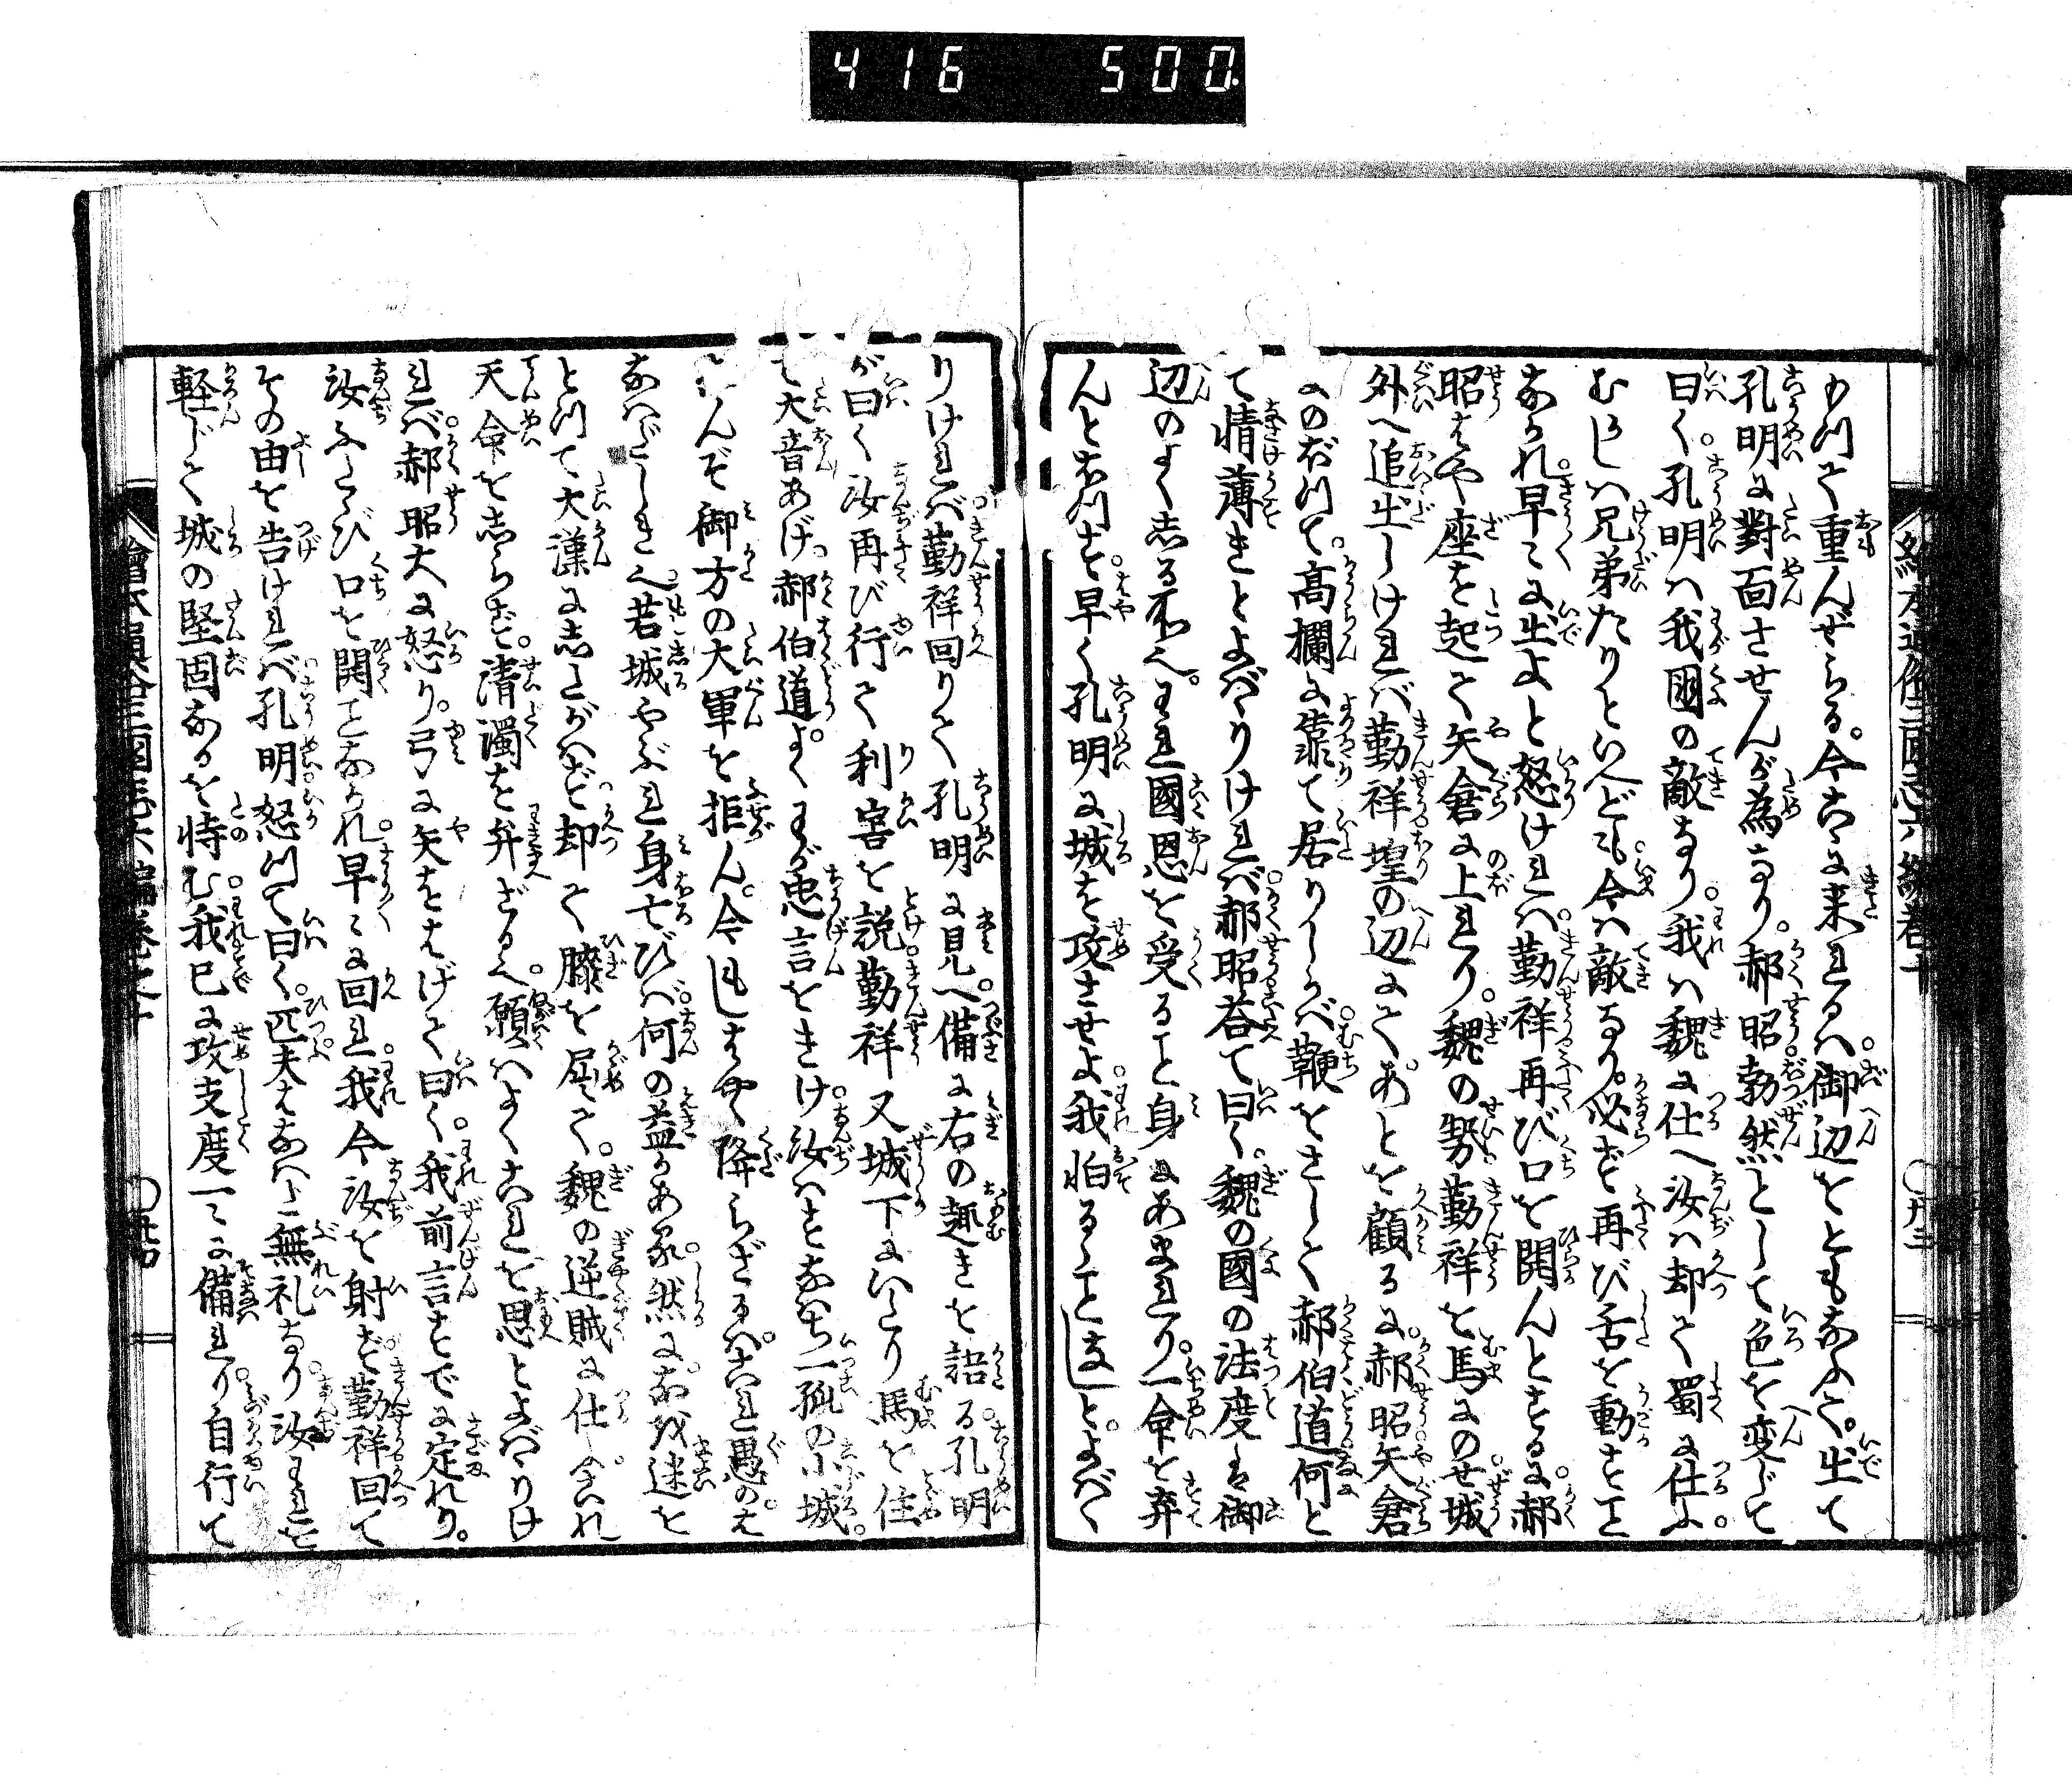 416 500.
繪本通俗三國志六編卷十
もつて重んぜらる。今こゝに来れるハ御辺をともなふて。出て
孔明に對面させんが為なり。郝昭勃然として色を変じて
曰く。孔明ハ我國の敵なり。我ハ魏に仕へ汝ハ却て蜀に仕ふ。
むかしハ兄弟たりといへども今ハ敵なり。必ず再び舌を動すこと
なかれ早々に出よと怒けれバ勤祥再び口を開んとするに郝
昭はや座を起て矢倉に上れり。魏の勢勤祥を馬にのせ城
外へ追出しけれバ勤祥堭の辺にて。あとを顧るに郝昭矢倉
にのぼつて。高欄に靠て居りしかバ鞭をさして郝伯道何と
て情薄きとよばゝりけれバ郝昭荅て曰く。魏の國の法度は御
辺のよく志る所へ。われ國恩を受ること身にあまれり。一命を弃
んとおつす。早く孔明に城を攻させよ我怕るゝことなしと。よばゝ
りけれバ勤祥回りて孔明に見へ備に右の趣きを語る。孔明
が曰く汝再び行て利害を説勤祥又城下にいたり馬を住
て大音あげ。郝伯道よ。よくわが愚言をきけ。汝ハすなハち一孤の小城。
んぞ御方の大軍を拒ん。今もしはやく降らざるハ。これ愚の
なハだしきへ。若城やぶれ身亡びバ。何の益かあらん。然に
とつて大漢に志たがハず却て膝を屈して。魏の逆賊に仕へ
天命を志らず。清濁を弁ざるへ。願ハよくこれを思へとよばゝりけ
れバ。郝昭大に怒り。弓に矢をはげて曰く。我前言すでに定れり。
汝ふたゝび口を開ことなかれ。早々に回れ。我今汝を射ず。勤祥回て
その由を告けれバ。孔明怒つて曰く。匹夫はなハだ無礼なり汝われを
軽じて城の堅固なるを恃む。我已に攻支度一々に備れり。自行て
繪本通俗三國志六編卷之十